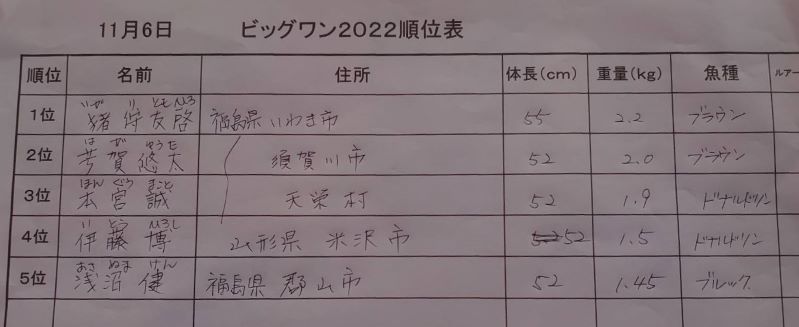 11月6日 ビッグワン2022順位表
順位 名前 住所 体長(cm) 重量(kg) 魚種 ルアー
いがり ともひろ
1位 猪狩友啓 福島県いわき市 55 2.2 ブラウン
はが ゆうた
2位 芳賀悠太 須賀川市 52 2.0 ブラウン
ほんぐう まこと
3位 本宮誠 天栄村 52 1.9 ドナルドソン
いとう ひろし
4位 伊藤博 山形県 米沢市 52 1.5 ドナルドソン
あさぬま けん
5位 浅沼健 福島県 郡山市 52 1.45 ブルック